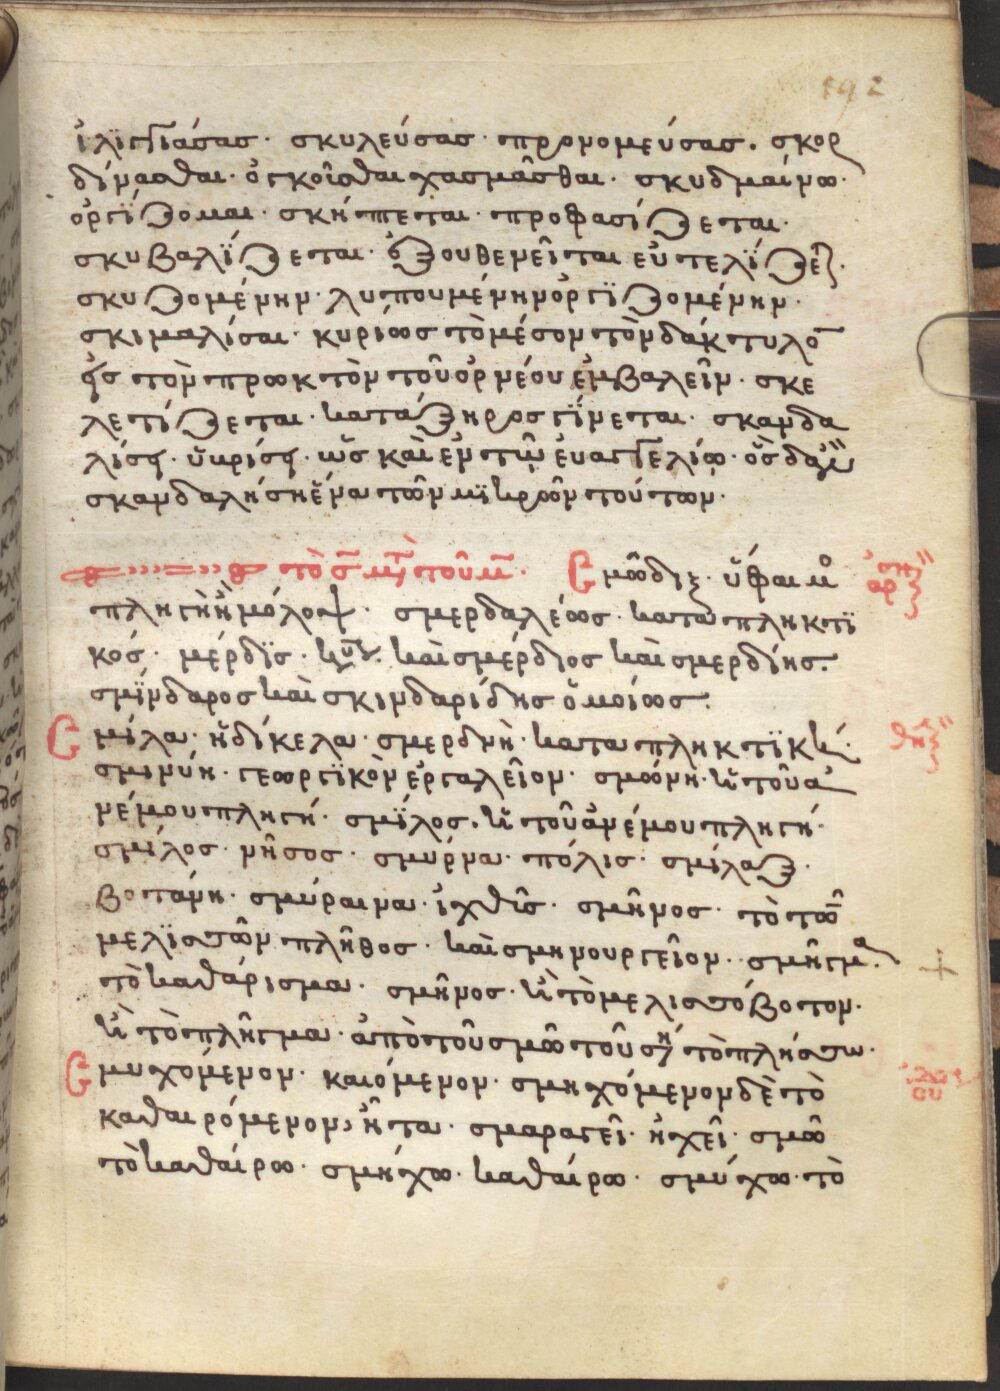 192
ἰλιγγιάσας· σκυλεύσας· προνομεύσας. σκορ
δίνασθαι· ὀγκοῖσθαι χασμᾶσθαι· σκυδμαίνω·
ὀργίζομαι· σκήπτεται· προφασίζεται·
σκυβαλίζεται· ἐξουθενεῖται εὐτελίζει·
σκυζομένην· λυπουμένην ὀργϊζομένην·
σκιμαλίσαι· κυρίως τὸ μέσον τὸν δάκτυλον
εἰς τὸν πρωκτὸν τοῦ ὀρνέου ἐμβαλεῖν· σκε
λετίζεται· κατάξηρος γίνεται· σκανδα
λίσῃ· ὑκρίσῃ· ὡς καὶ ἐν τῷ ἐυαγγελίῳ· ὃς δἂν
σκανδαλήσῃ ἕνα τῶν μϊκρῶν τούτων·
τὸ σ μετὰ τοῦ μ· Σμῶδιξ· ὕφαιμος
πληγὴ ἢ μόλοψ· σμερδαλέως· καταπληκτϊ
κός· μέρδϊς· κύριον· καὶ σμέρδιος καὶ σμερδίης·
σμϊνδαρος καὶ σκινδαρίδης ὁμοίως·
Σμίλα· ἡ δίκελα· σμερδνὴ· καταπληκτϊκή·
σμινύη· γεωργϊκὸν ἐργαλεῖον· σμώνη· ἡ τοῦ ἀ
νέμου πληγή· σμϊλος· ἡ τοῦ ἀνέμου πληγή·
σμίλος· νῆσος· σμύρνα· πόλις· σμίλαξ·
βοτάνη· σμύραινα· ἰχθῦς· σμῆνος· τὸ τῶν
μελϊσσῶν πλῆθος· καὶ σμηνουργεῖον· σμῆγμα·
τὸ καθάρισμα· σμῆνος· καὶ τὸ μελισσόβοτον·
καὶ τὸ πλῆγμα· ἀπὸ τοῦ σμῶ τοῦ σημ τὸ πλήσσω·
Σμυχόμενον· καιόμενον· σμηχόμενον δὲ τὸ
καθαιρόμενον, ἦτα· σμαραγεῖ· ἠχεῖ· σμῶ
τὸ καθαίρω· σμήχω· καθαίρω· σμύχω· τὸ